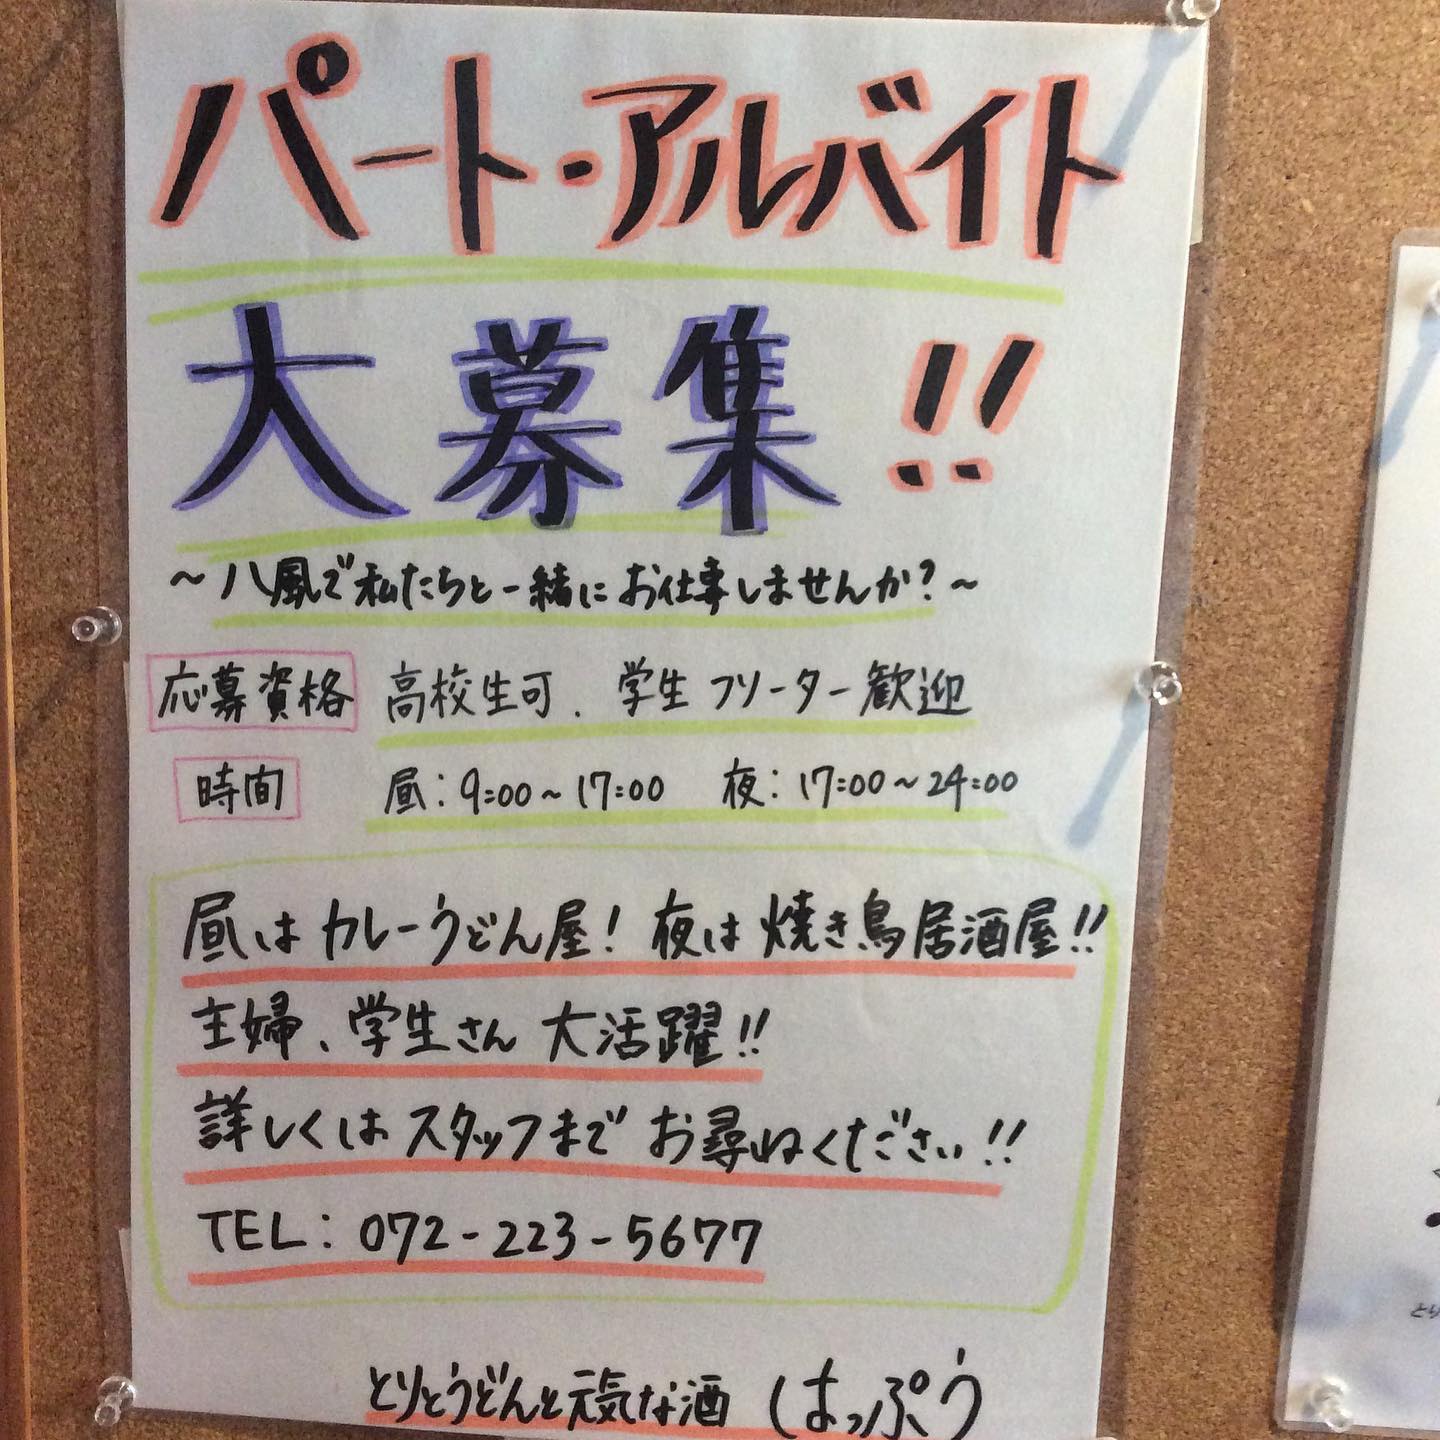 パート・アルバイト
大募集!!
～八風で私たちと一緒にお仕事しませんか?～
応募資格 高校生可、学生フリーター歓迎
時間 昼:9:00～17:00 夜:17:00～24:00
昼はカレーうどん屋!夜は焼き鳥居酒屋!!
主婦、学生さん大活躍!!
詳しくはスタッフまでお尋ねください!!
TEL:072-223-5677
とりとうどんと元気な酒 はっぷう
とり